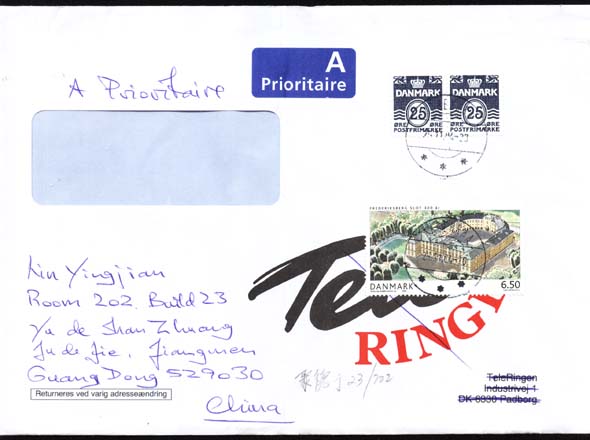 A Prioritaire
A
Prioritaire
DANMARK DANMARK
25 25
ØRE ØRE
POSTFRIMÆRKE POSTFRIMÆRKE
FREDERIKSBERG SLOT 300 ÅR
DANMARK 6.50
Te
RINGE
Yingjian
Room 202. Build 23
Yu de Shan Zhuang
Ju de Jie, Jiangmen
Guang Dong 529030
China
Returneres ved varig adresseændring
23/202
TeleRingen
Industrivej 1
DK-6330 Padborg